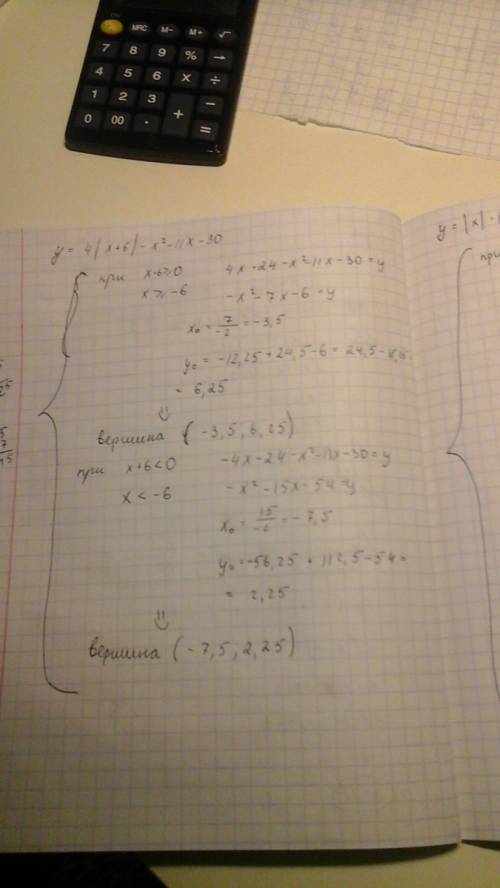 MRC M- M+ √
7 8 9 % →
4 5 6 X ÷
1 2 3 + -
0 00 · =
y = 4|x+6| - x² - 11x - 30
y = |x| -
при x+6≥0 4x+24-x²-11x-30=y
при
x ≥ -6 -x²-7x-6=y
x₀ = 7/-2 = -3,5
y₀ = -12,25+24,5-6 = 24,5-18,25
= 6,25
⇓
вершина (-3,5, 6,25)
при x+6<0 -4x-24-x²-11x-30=y
x < -6 -x²-15x-54=y
x₀ = 15/-2 = -7,5
y₀ = -56,25 + 112,5-54 =
= 2,25
⇓
вершина (-7,5, 2,25)